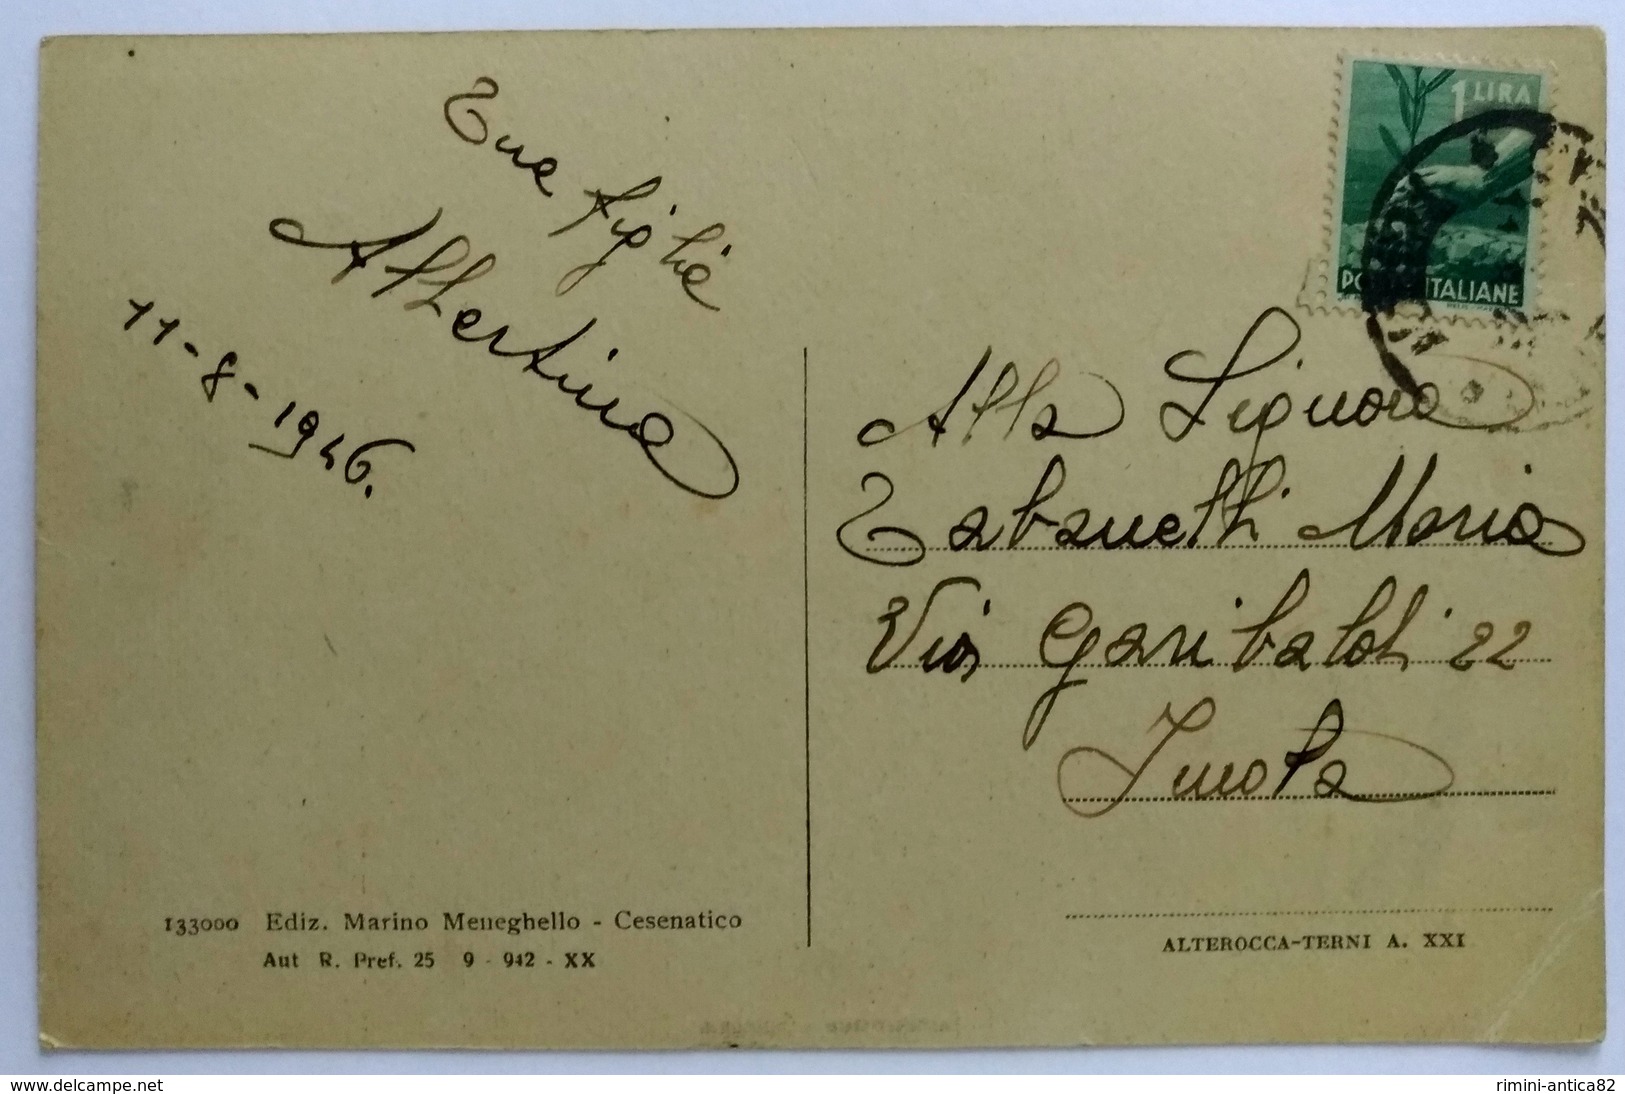 Tua figlia
Albertina
11-8-1946.
1 LIRA
ITALIANE
Alla Signora
Tabanelli Maria
Via Garibaldi 22
Imola
133000 Ediz. Marino Meneghello - Cesenatico
Aut R. Pref. 25 9 - 942 - XX
ALTEROCCA-TERNI A. XXI
www.delcampe.net
rimini-antica82